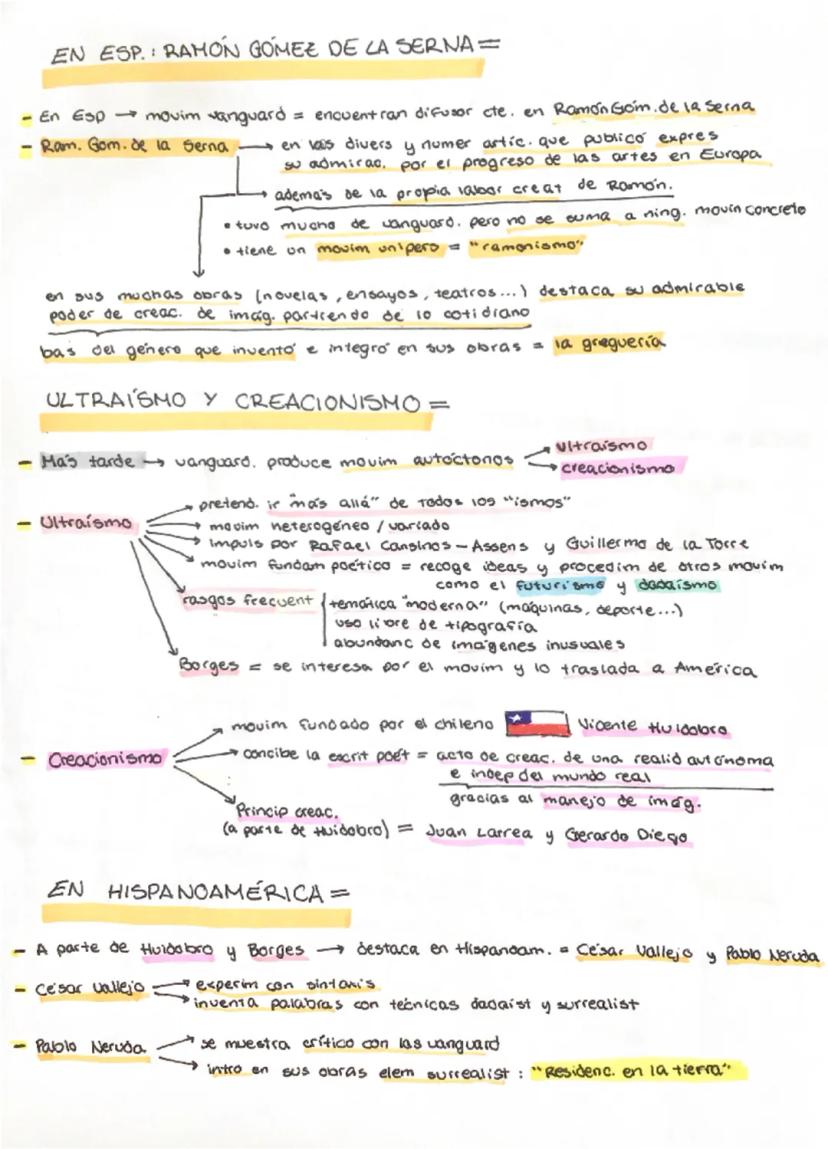 EN ESP.: RAMÓN GÓMEZ DE LA SERNA =
- En Esp → movim vanguard = encuentran difusor cte. en Ramón Góm. de la Serna
- Ram. Gom. de la Serna → en las divers y numer artíc. que publicó expres
su admirac. por el progreso de las artes en Europa
→ además de la propia labor creat de Ramón.
• tuvo mucho de vanguard. pero no se suma a ning. movim concreto
• tiene un movim unipers = "ramonismo"
en sus muchas obras (novelas, ensayos, teatros...) destaca su admirable
poder de creac. de imág. partiendo de lo cotidiano
bas del género que inventó e integró en sus obras = la greguería
ULTRAÍSMO Y CREACIONISMO =
- Más tarde → vanguard. produce movim autóctonos → ultraísmo
→ creacionismo
- Ultraísmo → pretend. ir "más allá" de todos los "ismos"
→ movim heterogéneo / variado
→ impuls por Rafael Cansinos-Assens y Guillermo de la Torre
→ movim fundam poético = recoge ideas y procedim de otros movim
como el futurismo y dadaísmo
rasgos frecuent temática "moderna" (máquinas, deporte...)
uso libre de tipografía
abundanc de imágenes inusuales
Borges = se interesa por el movim y lo traslada a América
- Creacionismo → movim fundado por el chileno Vicente Huidobro
→ concibe la escrit poét = acto de creac. de una realid autónoma
e indep del mundo real
gracias al manejo de imág.
Princip creac.
(a parte de Huidobro) = Juan Larrea y Gerardo Diego
EN HISPANOAMÉRICA =
- A parte de Huidobro y Borges → destaca en Hispanoam. = César Vallejo y Pablo Neruda
- César Vallejo → experim con sintaxis
→ inventa palabras con técnicas dadaíst y surrealist
- Pablo Neruda → se muestra crítico con las vanguard
→ intro en sus obras elem surrealist : "Residenc. en la tierra"